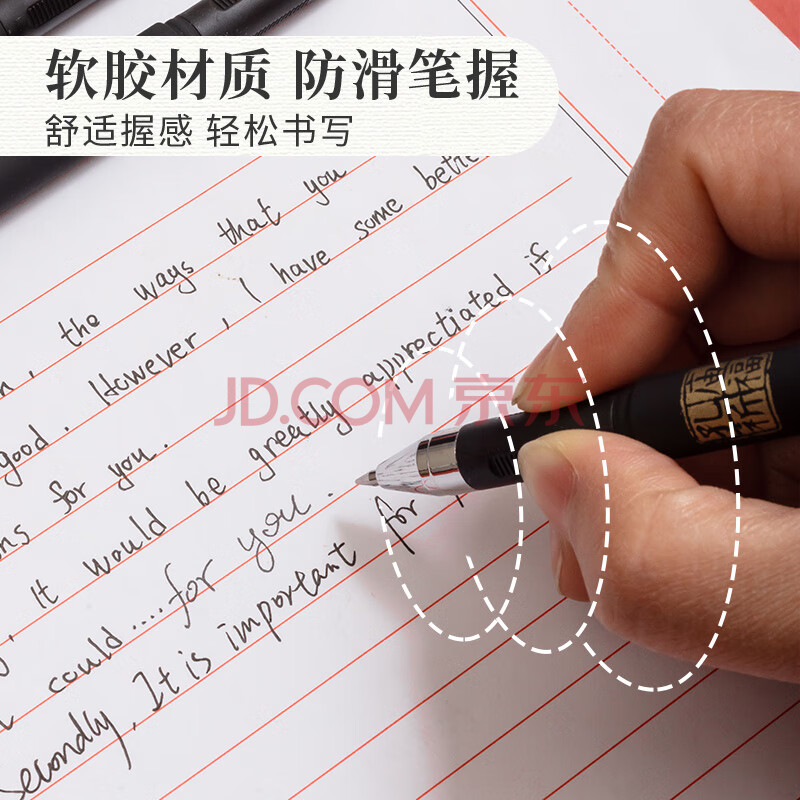 软胶材质 防滑笔握
舒适握感 轻松书写
, the ways that you
good. However, I have some
for you.
, it would be greatly apprectiated if
could....for you.
Secondly, It is important for
JD.COM 京东
孔庙祈福